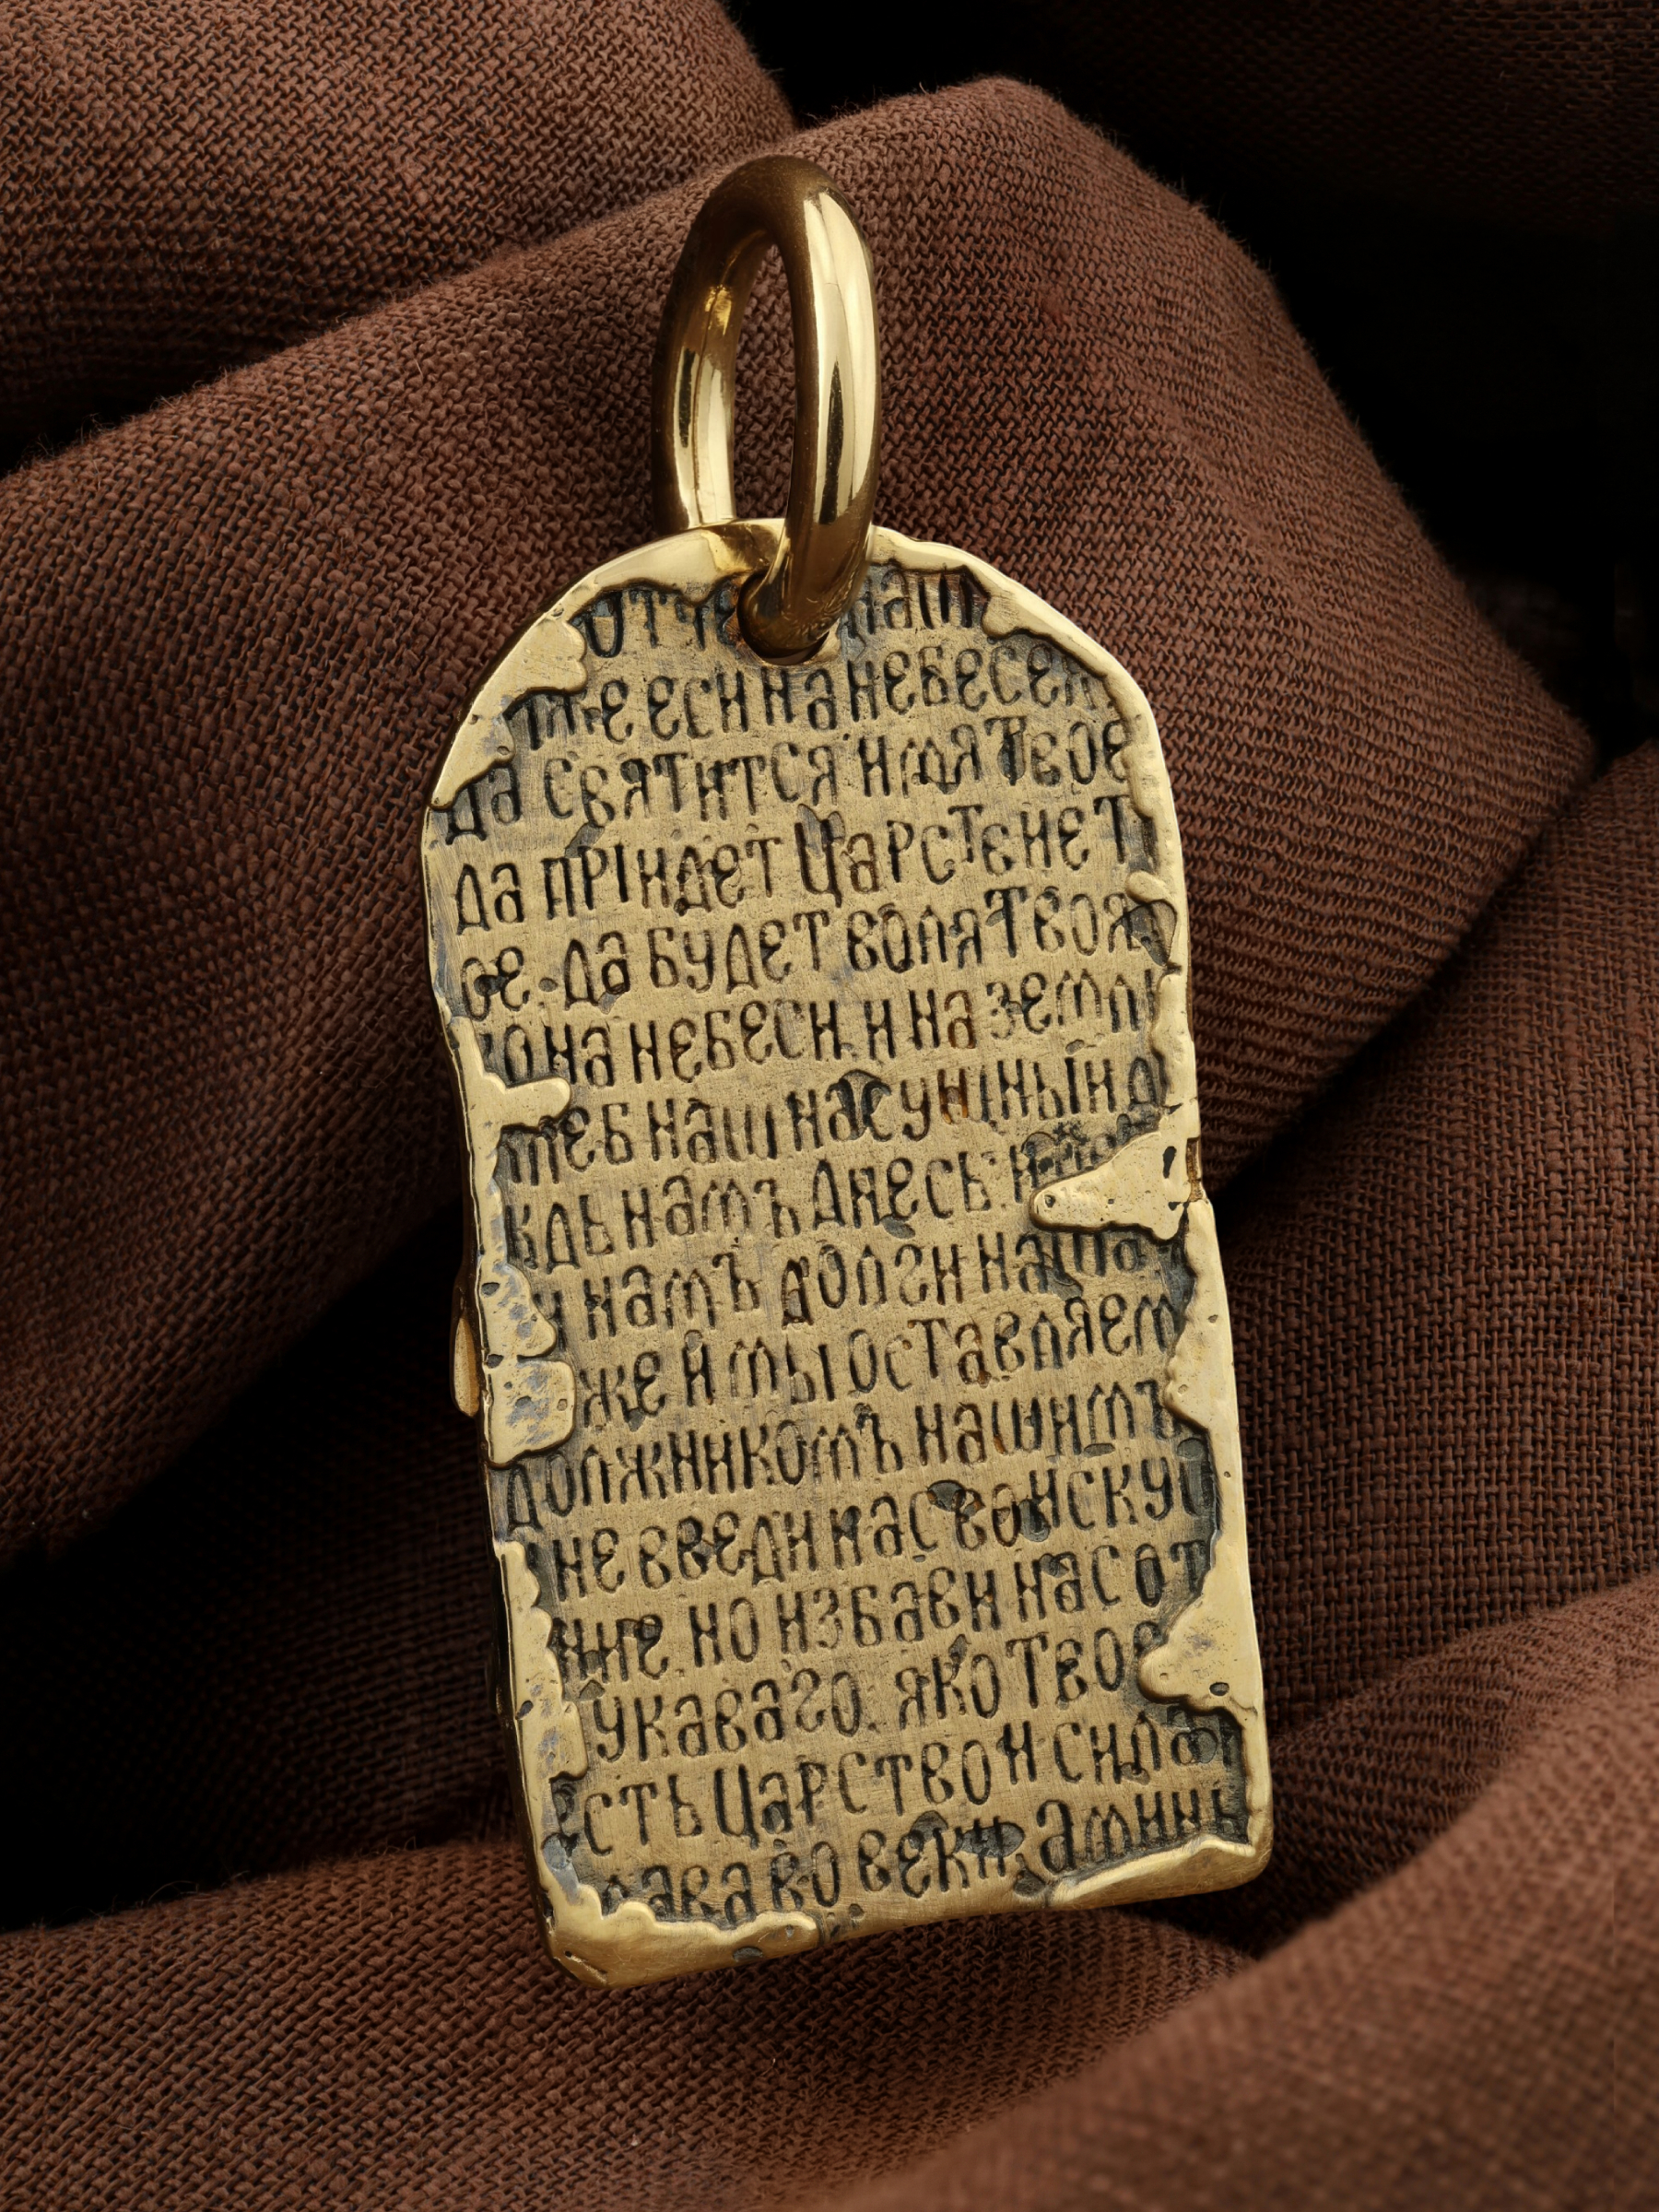 ОТЧЕ НАШ
ИЖЕ ЕСИ НА НЕБЕСЕХ
ДА СВЯТИТСЯ ИМЯ ТВОЕ
ДА ПРІИДЕТ ЦАРСТВИЕ Т
ОЕ. ДА БУДЕТ ВОЛЯ ТВОЯ
КО НА НЕБЕСИ. И НА ЗЕМЛИ
ХЛЕБ НАШ НАСУЩНЫЙ Д
ЖДЬ НАМЪ ДНЕСЬ. И
И НАМЪ ДОЛГИ НАША
ЖЕ И МЫ ОСТАВЛЯЕМ
ДОЛЖНИКОМЪ НАШИМЪ
НЕ ВВЕДИ НАС ВО ИСКУС
НИЕ. НО ИЗБАВИ НАС ОТ
УКАВАГО. ЯКО ТВОЕ
ЕСТЬ ЦАРСТВО И СИЛА И
ЛАВА ВО ВЕКИ. АМИНЬ